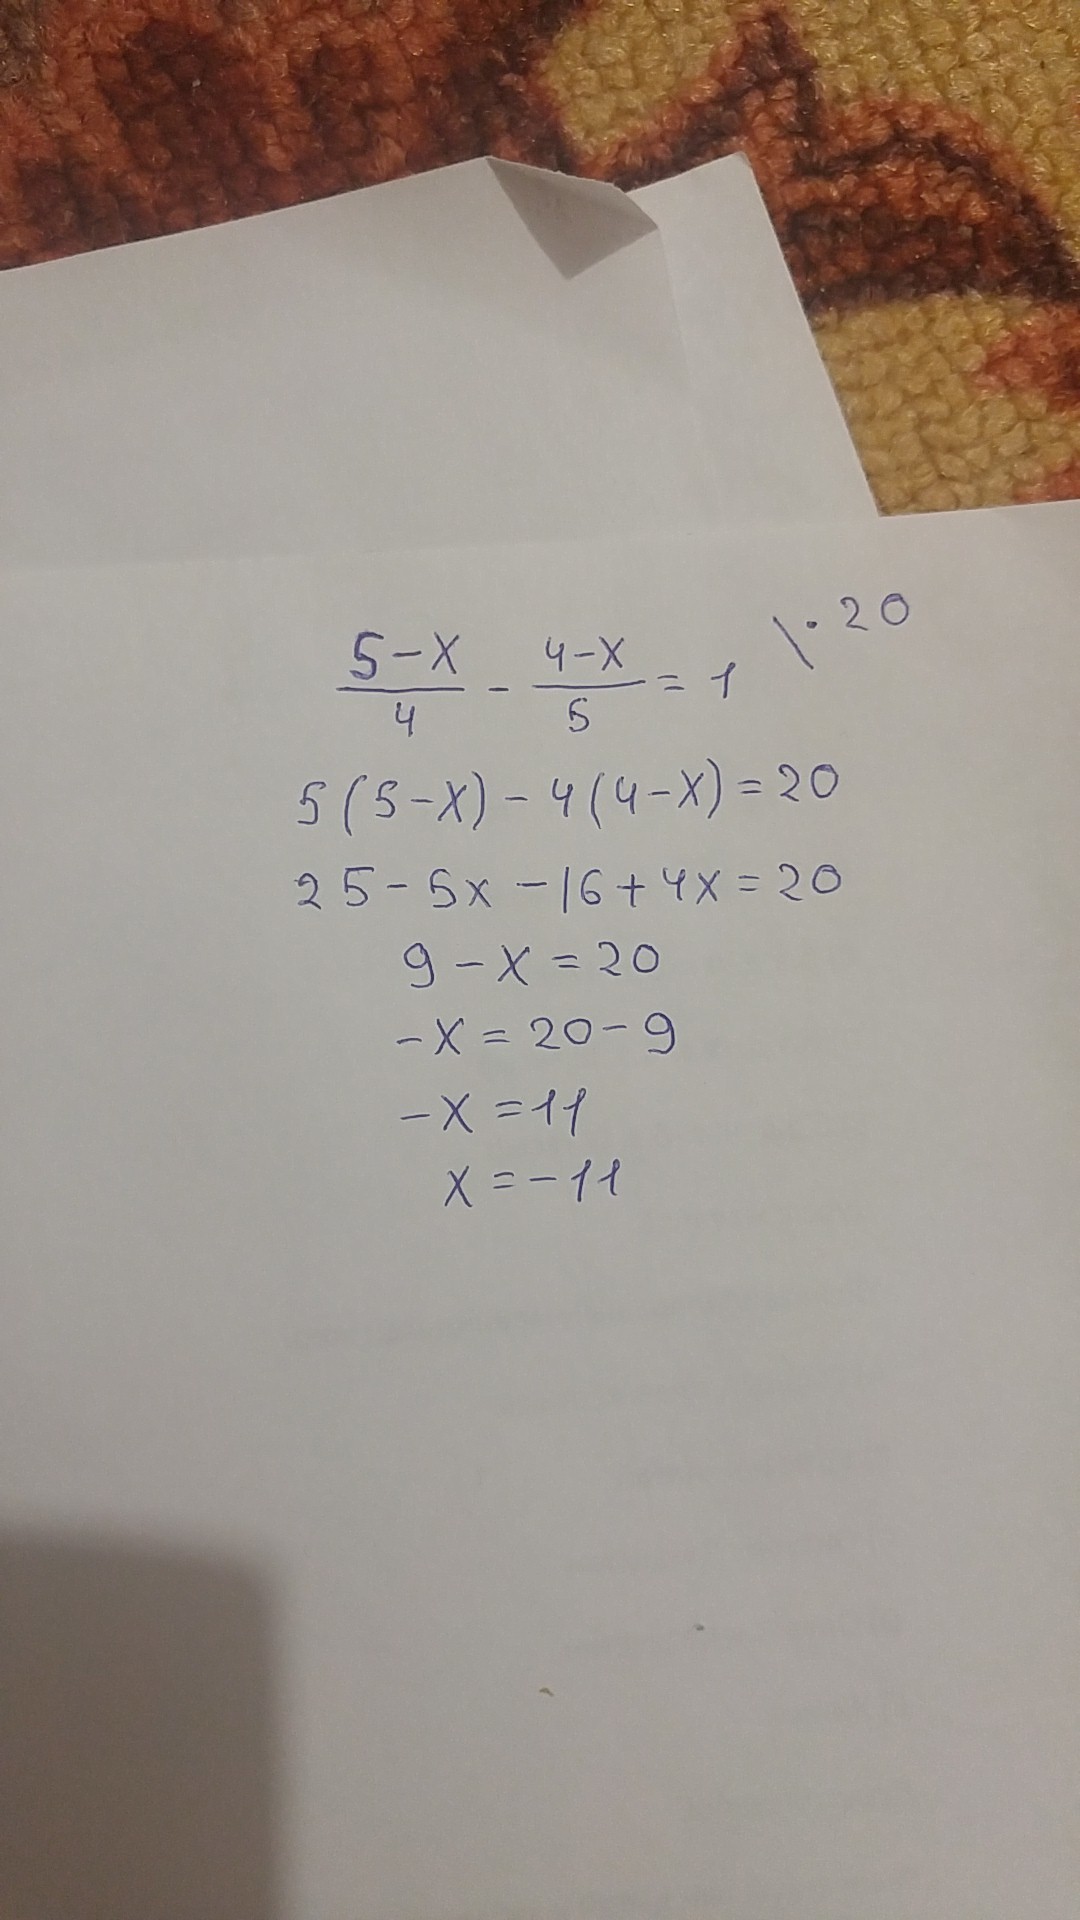 (5-x)/4 - (4-x)/5 = 1 \·20
5(5-x)-4(4-x)=20
25-5x-16+4x=20
9-x=20
-x=20-9
-x=11
x=-11